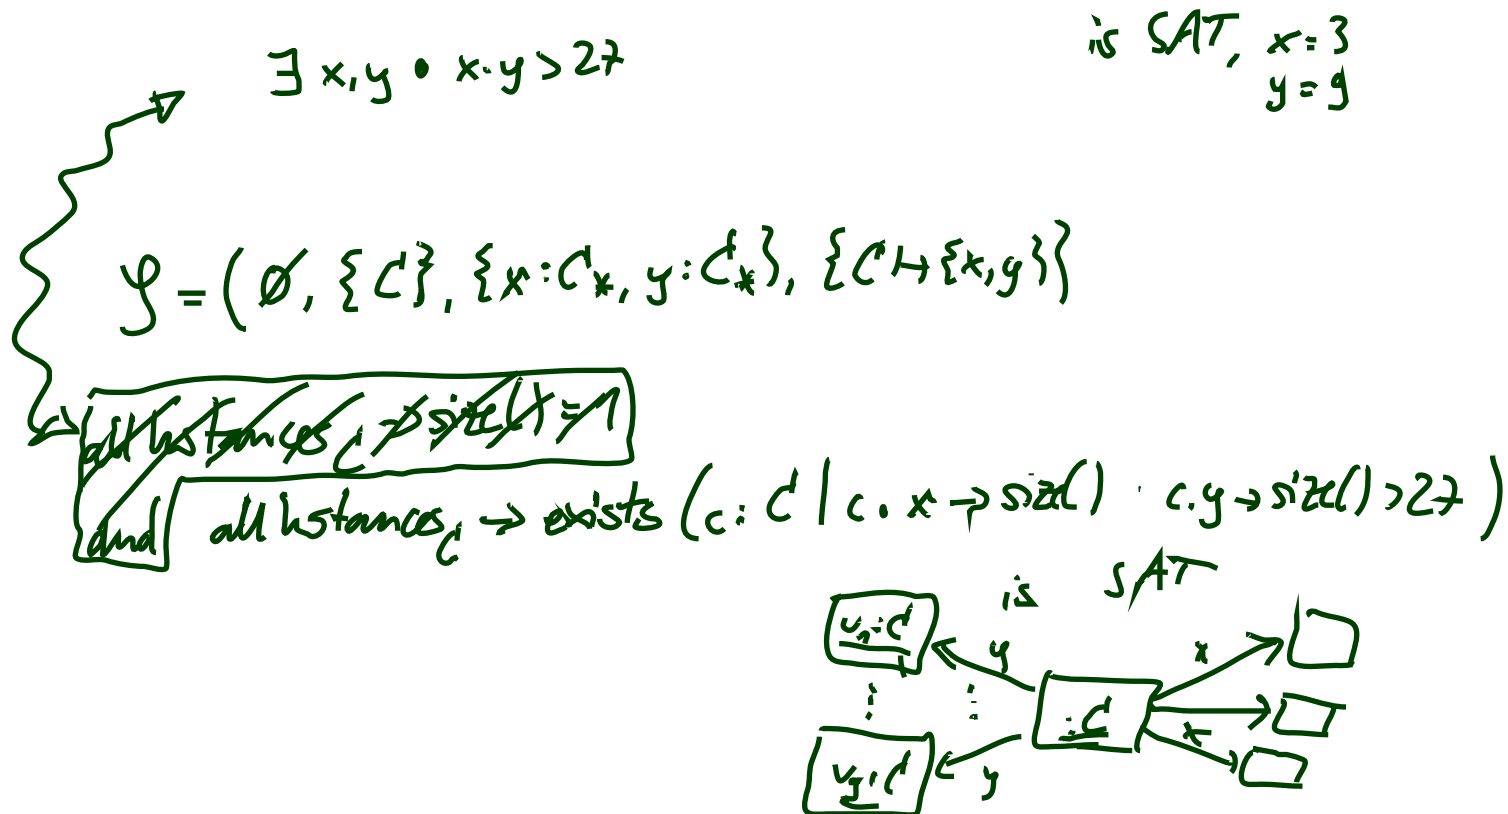 ∃ x, y • x·y > 27
is SAT, x = 3
y = 9
𝒮 = (∅, {C}, {x : C*, y : C*}, {C ↦ {x, y}})
allInstances_C → size() = 1
and allInstances_C → exists (c : C | c.x → size() · c.y → size() > 27)
is SAT
: C
y
x
: C
x
: C
y